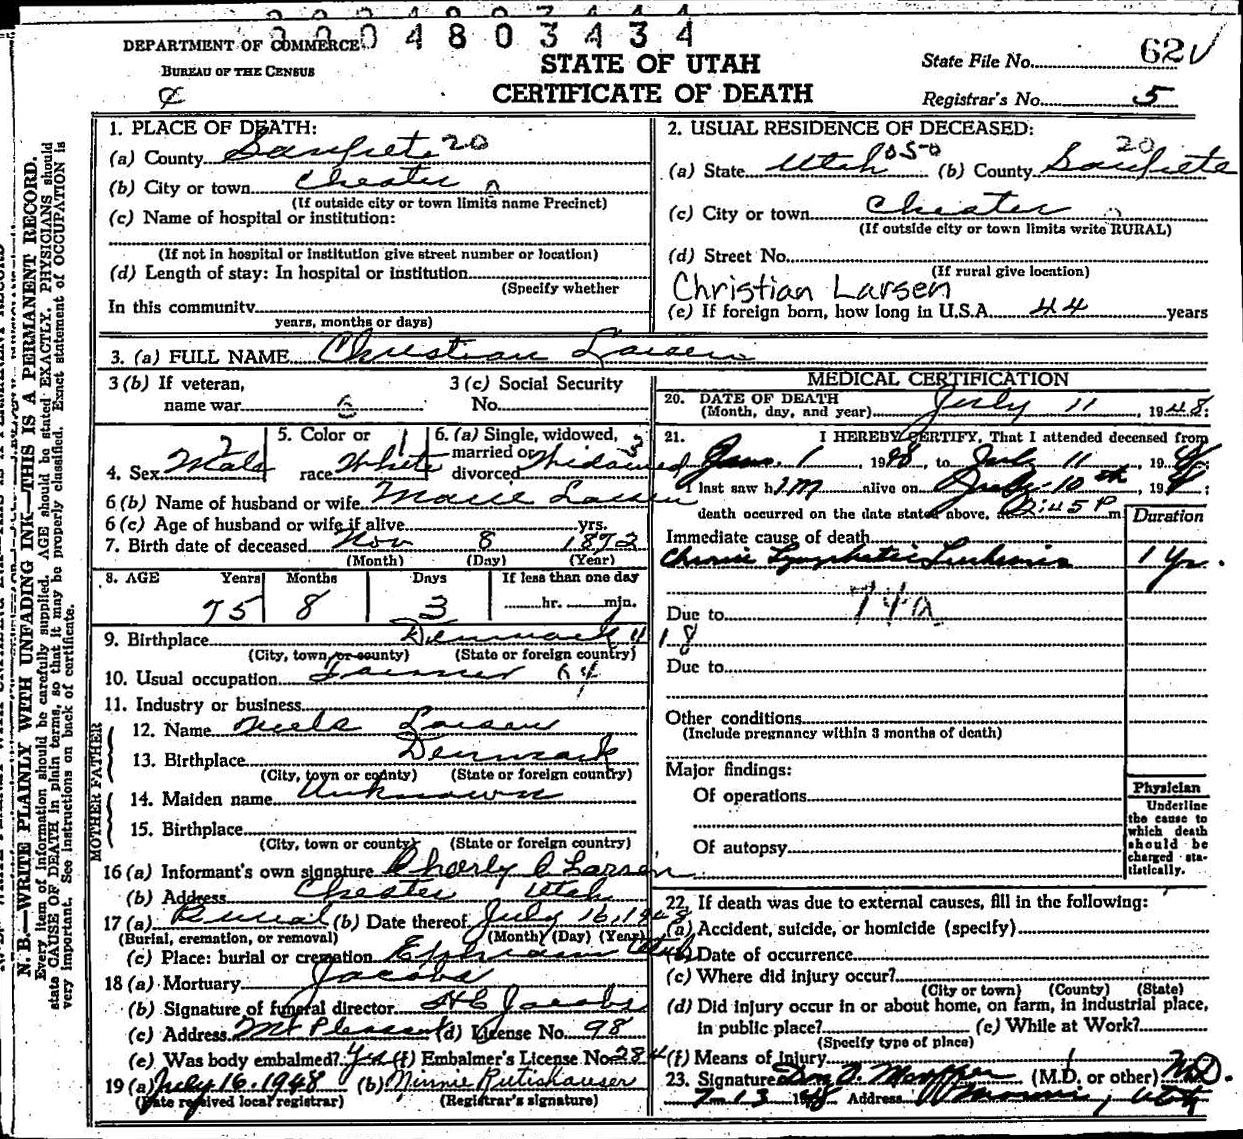 0004803434
DEPARTMENT OF COMMERCE
BUREAU OF THE CENSUS
STATE OF UTAH
CERTIFICATE OF DEATH
State File No. 62
Registrar's No. 5
N. B.—WRITE PLAINLY WITH UNFADING INK—THIS IS A PERMANENT RECORD.
Every item of information should be carefully supplied. AGE should be stated EXACTLY. PHYSICIANS should
state CAUSE OF DEATH in plain terms, so that it may be properly classified. Exact statement of OCCUPATION is
very important. See instructions on back of certificate.
1. PLACE OF DEATH:
(a) County Sanpete 20
(b) City or town Chester
(If outside city or town limits name Precinct)
(c) Name of hospital or institution:
(If not in hospital or institution give street number or location)
(d) Length of stay: In hospital or institution
(Specify whether
In this community
years, months or days)
2. USUAL RESIDENCE OF DECEASED:
(a) State Utah 050 (b) County Sanpete 20
(c) City or town Chester
(If outside city or town limits write RURAL)
(d) Street No.
(If rural give location)
Christian Larsen
(e) If foreign born, how long in U.S.A. 44 years
3. (a) FULL NAME Christian Larsen
3 (b) If veteran,
name war
3 (c) Social Security
No.
4. Sex Male
5. Color or
race White
6. (a) Single, widowed,
married or
divorced Widowed
6 (b) Name of husband or wife Marie Larsen
6 (c) Age of husband or wife if alive yrs.
7. Birth date of deceased Nov 8 1872
(Month) (Day) (Year)
8. AGE Years Months Days If less than one day
75 8 3 hr. min.
9. Birthplace Denmark
(City, town or county) (State or foreign country)
10. Usual occupation Farmer
11. Industry or business
FATHER
12. Name Niels Larsen
13. Birthplace Denmark
(City, town or county) (State or foreign country)
MOTHER
14. Maiden name Unknown
15. Birthplace
(City, town or county) (State or foreign country)
16 (a) Informant's own signature Charly C Larsen
(b) Address Chester Utah
17 (a) Burial (b) Date thereof July 16, 1948
(Burial, cremation, or removal) (Month) (Day) (Year)
(c) Place: burial or cremation Ephraim Utah
18 (a) Mortuary Jacobs
(b) Signature of funeral director H C Jacobs
(c) Address Mt Pleasant (d) License No. 98
(e) Was body embalmed? Yes (f) Embalmer's License No. 284
19 (a) July 16, 1948 (b) Minnie Rutishauser
(Date received local registrar) (Registrar's signature)
MEDICAL CERTIFICATION
20. DATE OF DEATH
(Month, day, and year) July 11, 1948:
21. I HEREBY CERTIFY, That I attended deceased from
Jan. 1, 1948, to July 11, 194
I last saw him alive on July 10th, 194 ;
death occurred on the date stated above, at :45 P m
Duration
Immediate cause of death
Chronic Lymphatic Leukemia 1 Yr.
74a
Due to
18
Due to
Other conditions
(Include pregnancy within 3 months of death)
Major findings:
Of operations
Of autopsy
Physician
Underline
the cause to
which death
should be
charged sta-
tistically.
22. If death was due to external causes, fill in the following:
(a) Accident, suicide, or homicide (specify)
(b) Date of occurrence
(c) Where did injury occur?
(City or town) (County) (State)
(d) Did injury occur in or about home, on farm, in industrial place,
in public place? (e) While at Work?
(Specify type of place)
(f) Means of injury
23. Signature (M.D. or other) M.D.
7-13 1948 Address Utah